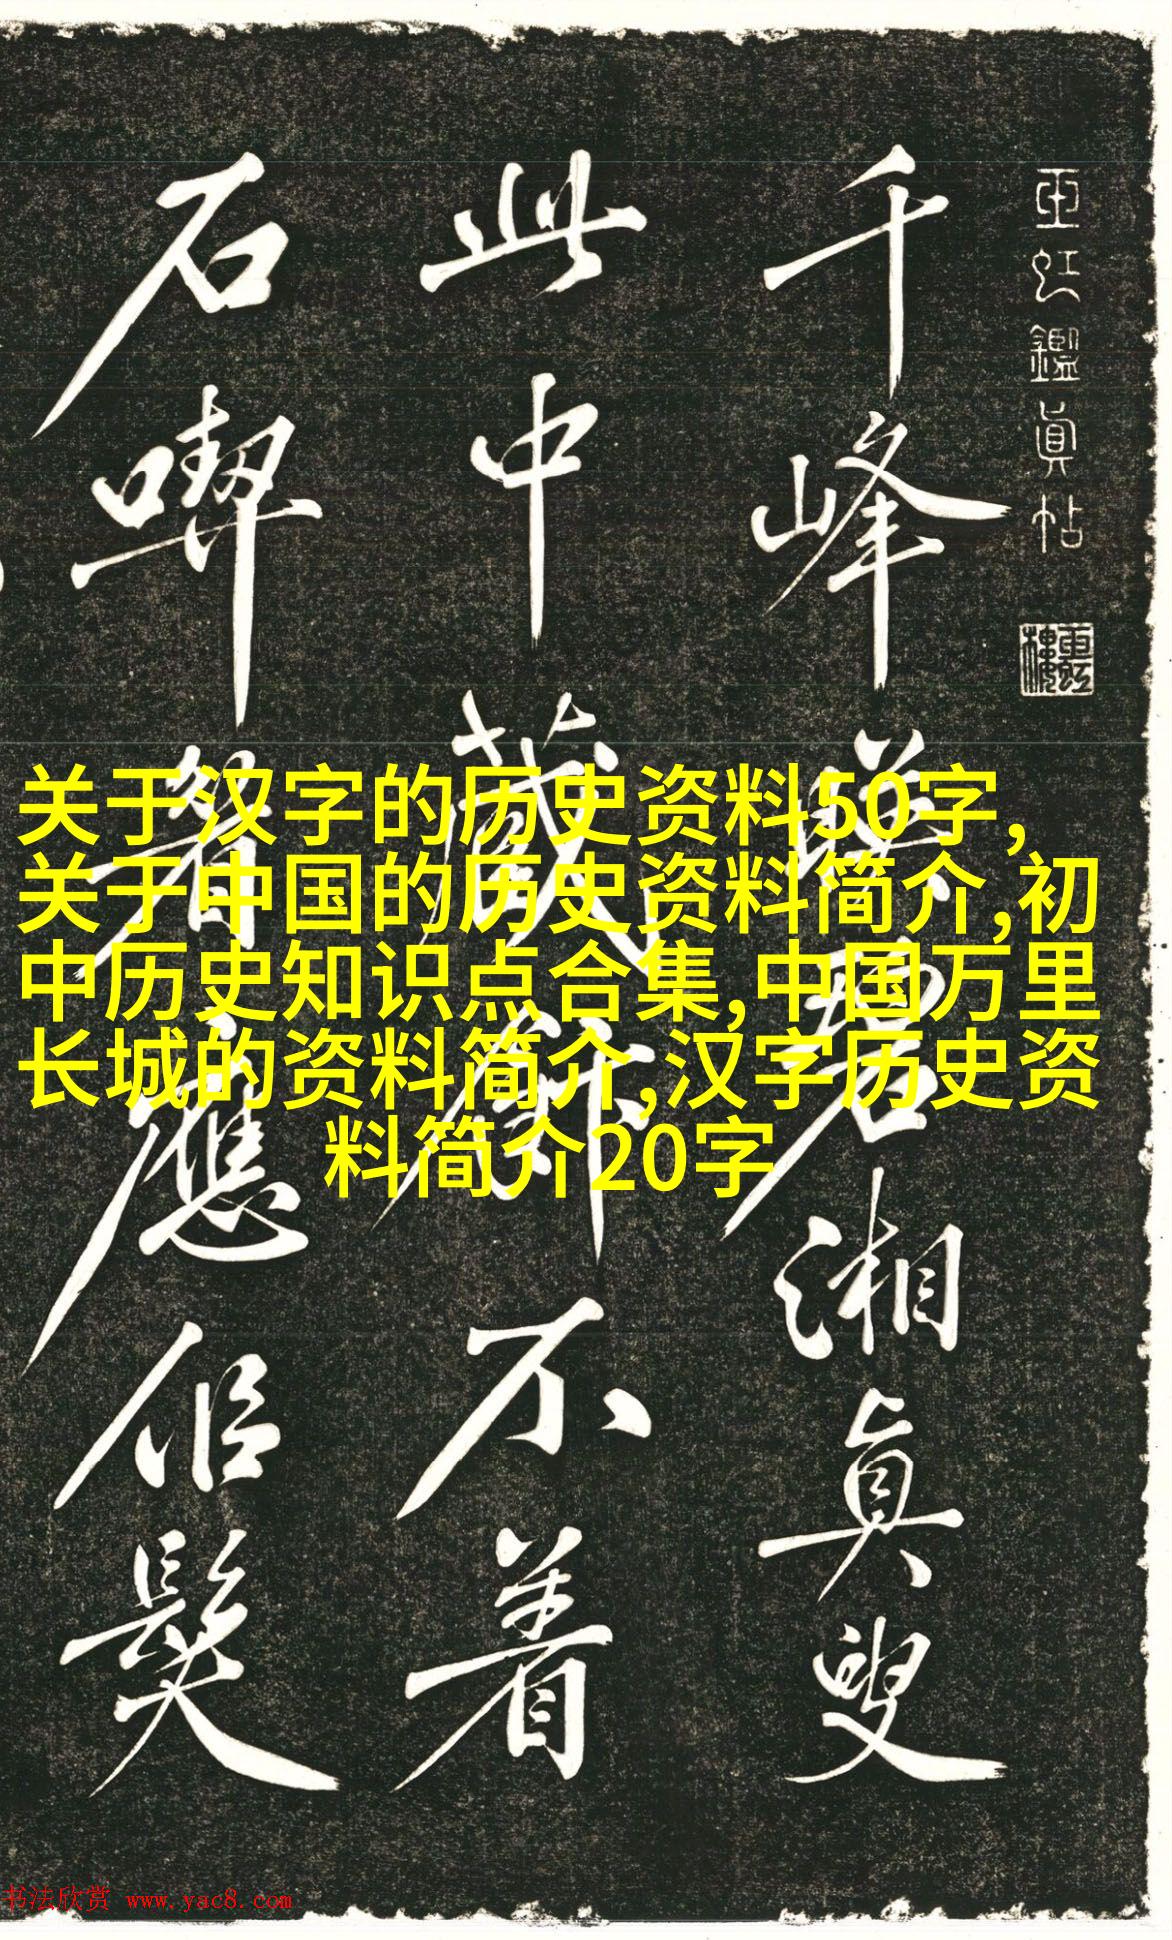 玉虹鑑真帖
玉虹樓
千峰映碧湘真叟
此中藏不
石喫應佀髮
关于汉字的历史资料50字,
关于中国的历史资料简介,初
中历史知识点合集,中国万里
长城的资料简介,汉字历史资
料简介20字
书法欣赏 www.yac8.com